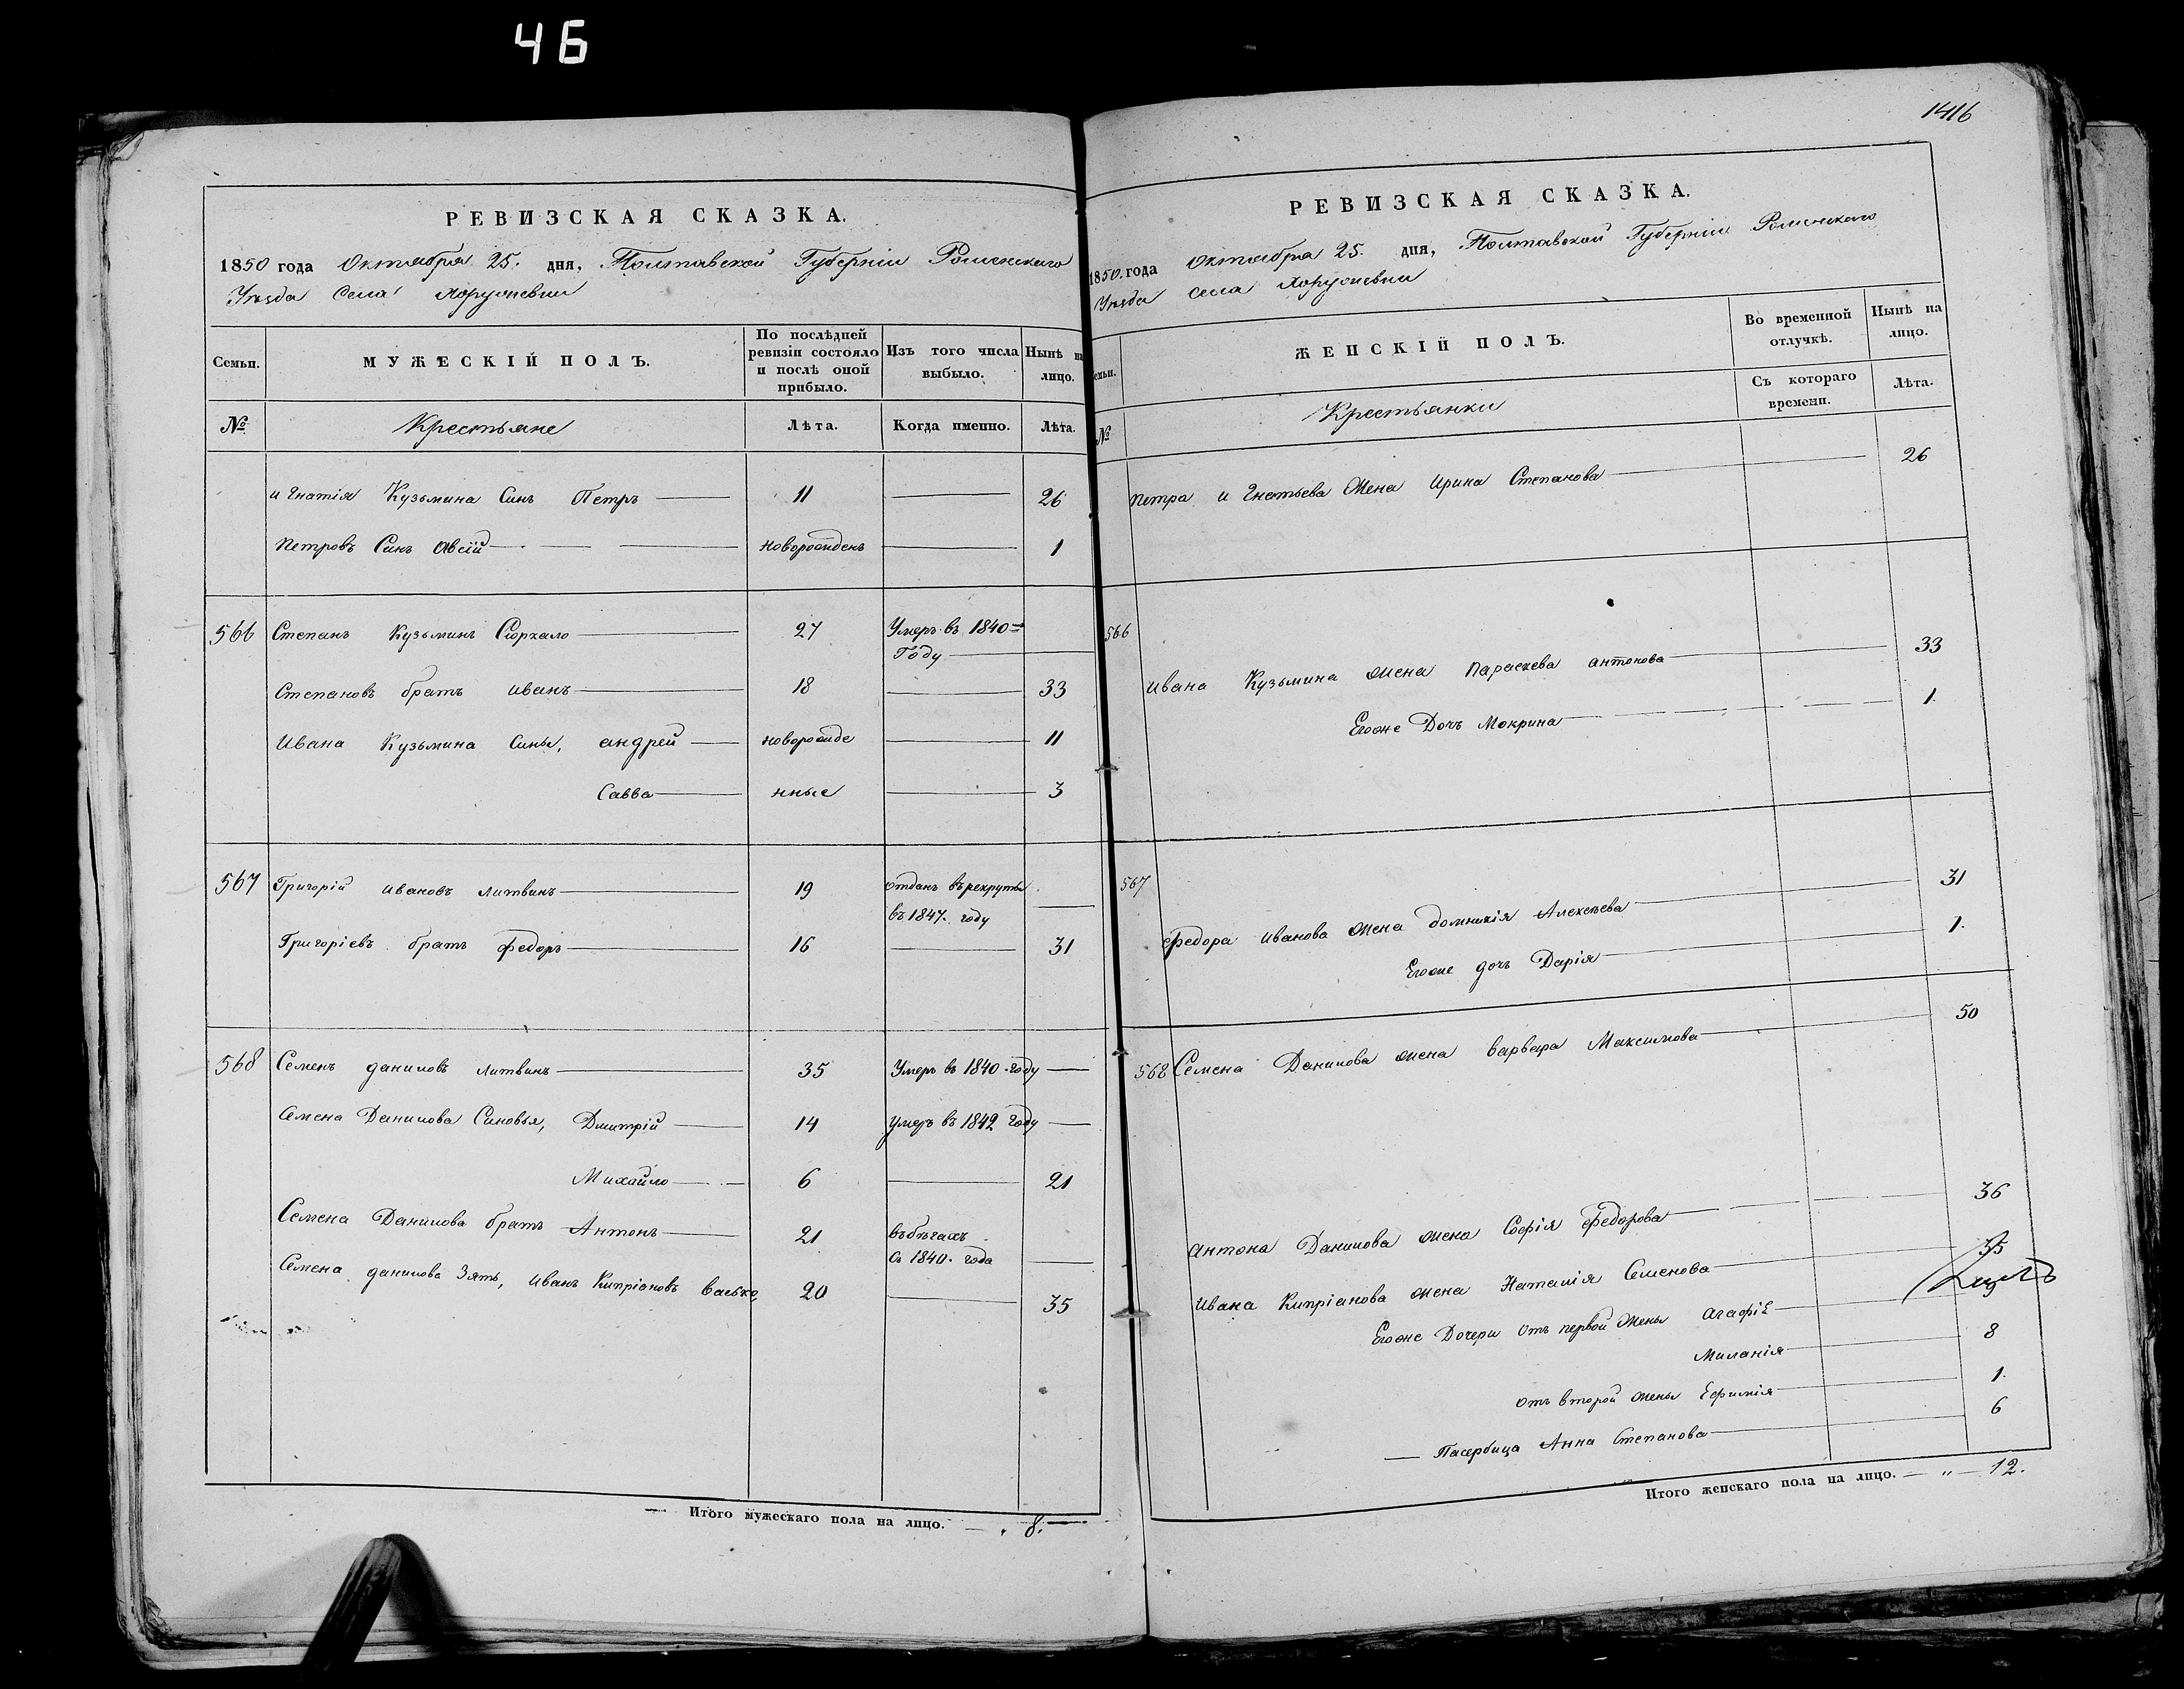 4Б
1416
РЕВИЗСКАЯ СКАЗКА.
1850 года Октября 25. дня, Полтавской Губерніи Роменскаго
Уѣзда Села Хоружевки
Семьи.
МУЖЕСКІЙ ПОЛЪ.
По послѣдней ревизіи состояло и послѣ оной прибыло.
Изъ того числа выбыло.
Нынѣ на лицо.
№
Крестьяне
Лѣта.
Когда именно.
Лѣта.
игнатія Кузьмина Синъ Петръ 11 26
Петровъ Синъ Авсій новорожденъ 1
566 Степанъ Кузьминъ Сюркало 27 Умеръ въ 1840
Году
Степановъ братъ иванъ 18 33
Ивана Кузьмина Сины, андрей новорожде 11
Савва нные 3
567 Григорій ивановъ литвинъ 19 отданъ въ рекруты
въ 1847. году
Григоріевъ братъ федоръ 16 31
568 Семенъ даниловъ литвинъ 35 Умеръ въ 1840. году
Семена Данилова Синовья, Дмитрій 14 умеръ въ 1842 году
Михайло 6 21
Семена Данилова братъ Антонъ 21 въ бѣгахъ
съ 1840. года
Семена данилова Зять, иванъ Кипріановъ васько 20 35
Итого мужескаго пола на лицо. 8.
РЕВИЗСКАЯ СКАЗКА.
1850. года Октября 25. дня, Полтавской Губерніи Роменскаго
Уѣзда Села Хоружевки
Семьи.
ЖЕНСКІЙ ПОЛЪ.
Во временной отлучкѣ.
Нынѣ на лицо.
Съ котораго времени.
Лѣта.
№
Крестьянки
Петра игнатьева жена Ирина Степанова 26
566
ивана Кузьмина жена Параскева антонова 33
Егоже Дочь Мокрина 1.
567
федора иванова жена домникія Алексѣева 31
Егоже дочь Дарія 1.
568 Семена Данилова жена варвара Максимова 50
антона Данилова жена Софія федорова 36
ивана Кипріанова жена Наталія Семенова 35
Егоже Дочери отъ первой жены агафія
Миланія 8
отъ второй жены Ефимія 1.
Пасербица Анна Степанова 6
Итого женскаго пола на лицо. 12.